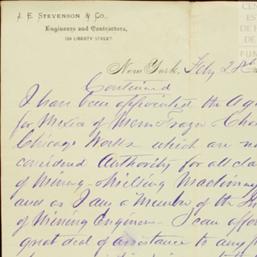 J. E. STEVENSON & CO.,
Engineers and Contractors,
LIBERTY STREET
New York, Feby 28th
Continued
I have been appointed the Ag
for Mexico of Messrs Frazer & Chal
Chicago Works which are no
considered Authority for all clas
of Mining & Smelting Machinery
and as I am a Member of the
of Mining Engineers I can offer
great deal of assistance to any